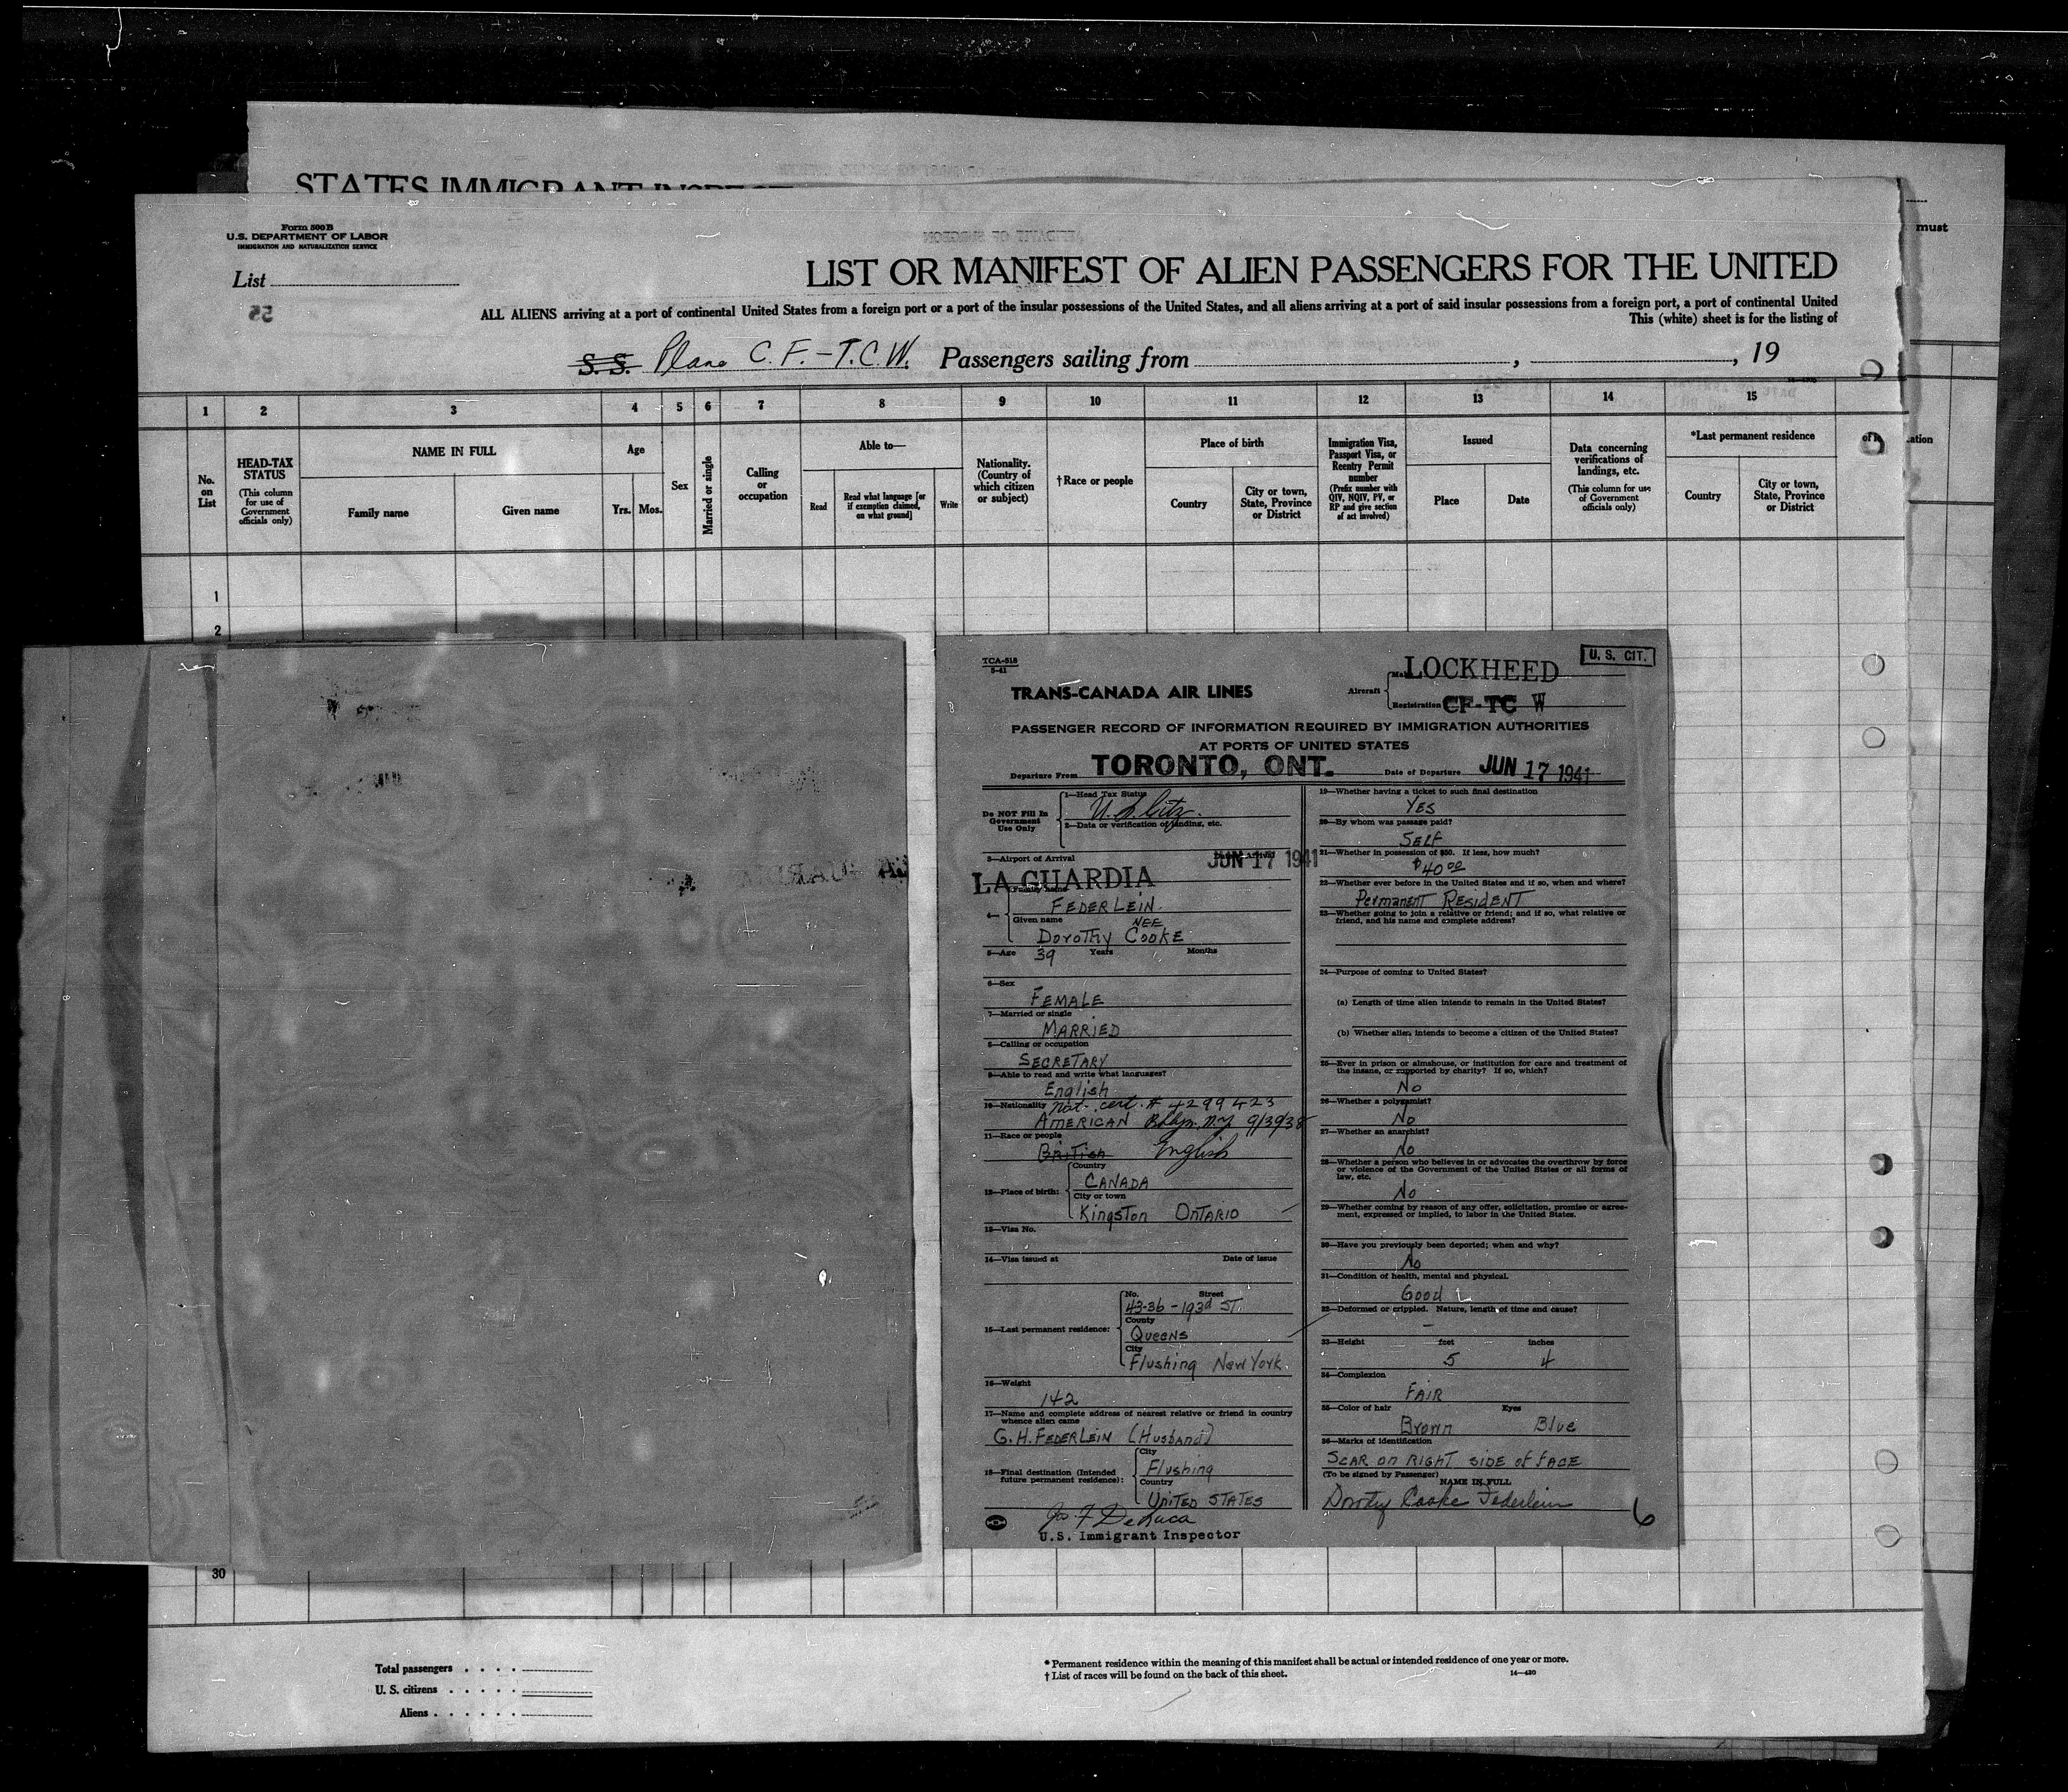 STATES IMMIGRANT INSPECT
must
Form 500B
U.S. DEPARTMENT OF LABOR
IMMIGRATION AND NATURALIZATION SERVICE
List
55
LIST OR MANIFEST OF ALIEN PASSENGERS FOR THE UNITED
ALL ALIENS arriving at a port of continental United States from a foreign port or a port of the insular possessions of the United States, and all aliens arriving at a port of said insular possessions from a foreign port, a port of continental United
This (white) sheet is for the listing of
S. S. Plane C. F.-T.C.W. Passengers sailing from , , 19
1 2 3 4 5 6 7 8 9 10 11 12 13 14 15
No. on List
HEAD-TAX STATUS
(This column for use of Government officials only)
NAME IN FULL
Family name Given name
Age
Yrs. Mos.
Sex
Married or single
Calling or occupation
Able to—
Read
Read what language [or if exemption claimed, on what ground]
Write
Nationality. (Country of which citizen or subject)
†Race or people
Place of birth
Country
City or town, State, Province or District
Immigration Visa, Passport Visa, or Reentry Permit number
(Prefix number with QIV, NQIV, PV, or RP and give section of act involved)
Issued
Place Date
Data concerning verifications of landings, etc.
(This column for use of Government officials only)
*Last permanent residence
Country
City or town, State, Province or District
1
2
TCA-518
5-41
LOCKHEED
U. S. CIT.
TRANS-CANADA AIR LINES
Aircraft
Registration CF-TC W
PASSENGER RECORD OF INFORMATION REQUIRED BY IMMIGRATION AUTHORITIES
AT PORTS OF UNITED STATES
Departure From TORONTO, ONT. Date of Departure JUN 17 1941
Do NOT Fill In Government Use Only
1—Head Tax Status
U. S. Citz.
2—Data or verification of landing, etc.
3—Airport of Arrival JUN 17 1941
LA GUARDIA
4—
Family name
FEDERLEIN.
Given name NEE
Dorothy COOKE
5—Age 39 Years Months
6—Sex
FEMALE
7—Married or single
MARRIED
8—Calling or occupation
SECRETARY
9—Able to read and write what languages?
English
10—Nationality Nat. cert. # 4299423
AMERICAN Bklyn, N.Y. 9/30/38
11—Race or people
British English
12—Place of birth:
Country
CANADA
City or town
Kingston ONTARIO
13—Visa No.
14—Visa issued at Date of issue
15—Last permanent residence:
No. Street
43-36 - 193d ST.
County
QUEENS
City
Flushing New York.
16—Weight
142
17—Name and complete address of nearest relative or friend in country whence alien came
G.H. FEDERLEIN (Husband)
18—Final destination (Intended future permanent residence):
City
Flushing
Country
UNITED STATES
Jos F DeLuca
U.S. Immigrant Inspector
19—Whether having a ticket to such final destination
YES
20—By whom was passage paid?
SELF
21—Whether in possession of $50. If less, how much?
$40.00
22—Whether ever before in the United States and if so, when and where?
Permanent RESIDENT
23—Whether going to join a relative or friend; and if so, what relative or friend, and his name and complete address?
24—Purpose of coming to United States?
(a) Length of time alien intends to remain in the United States?
(b) Whether alien intends to become a citizen of the United States?
25—Ever in prison or almshouse, or institution for care and treatment of the insane, or supported by charity? If so, which?
No
26—Whether a polygamist?
No
27—Whether an anarchist?
No
28—Whether a person who believes in or advocates the overthrow by force or violence of the Government of the United States or all forms of law, etc.
No
29—Whether coming by reason of any offer, solicitation, promise or agreement, expressed or implied, to labor in the United States.
30—Have you previously been deported; when and why?
No
31—Condition of health, mental and physical.
Good
32—Deformed or crippled. Nature, length of time and cause?
-
33—Height feet inches
5 4
34—Complexion
FAIR
35—Color of hair Eyes
Brown Blue
36—Marks of identification
SCAR on RIGHT SIDE of FACE
(To be signed by Passenger) NAME IN FULL
Dorothy Cooke Federlein
6
30
Total passengers
U. S. citizens
Aliens
* Permanent residence within the meaning of this manifest shall be actual or intended residence of one year or more.
† List of races will be found on the back of this sheet.
14—430